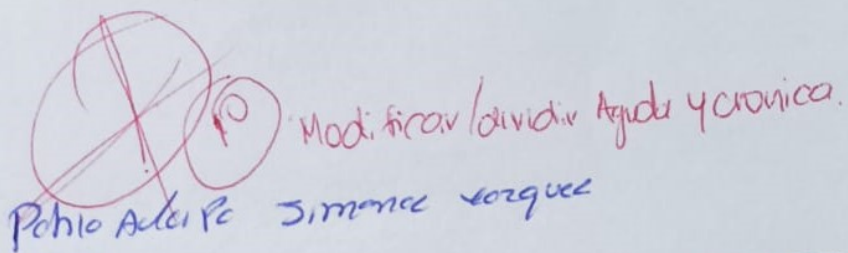 10 Modificar/dividir Aguda y cronica.
Pablo Adolfo Jimenez Vazquez